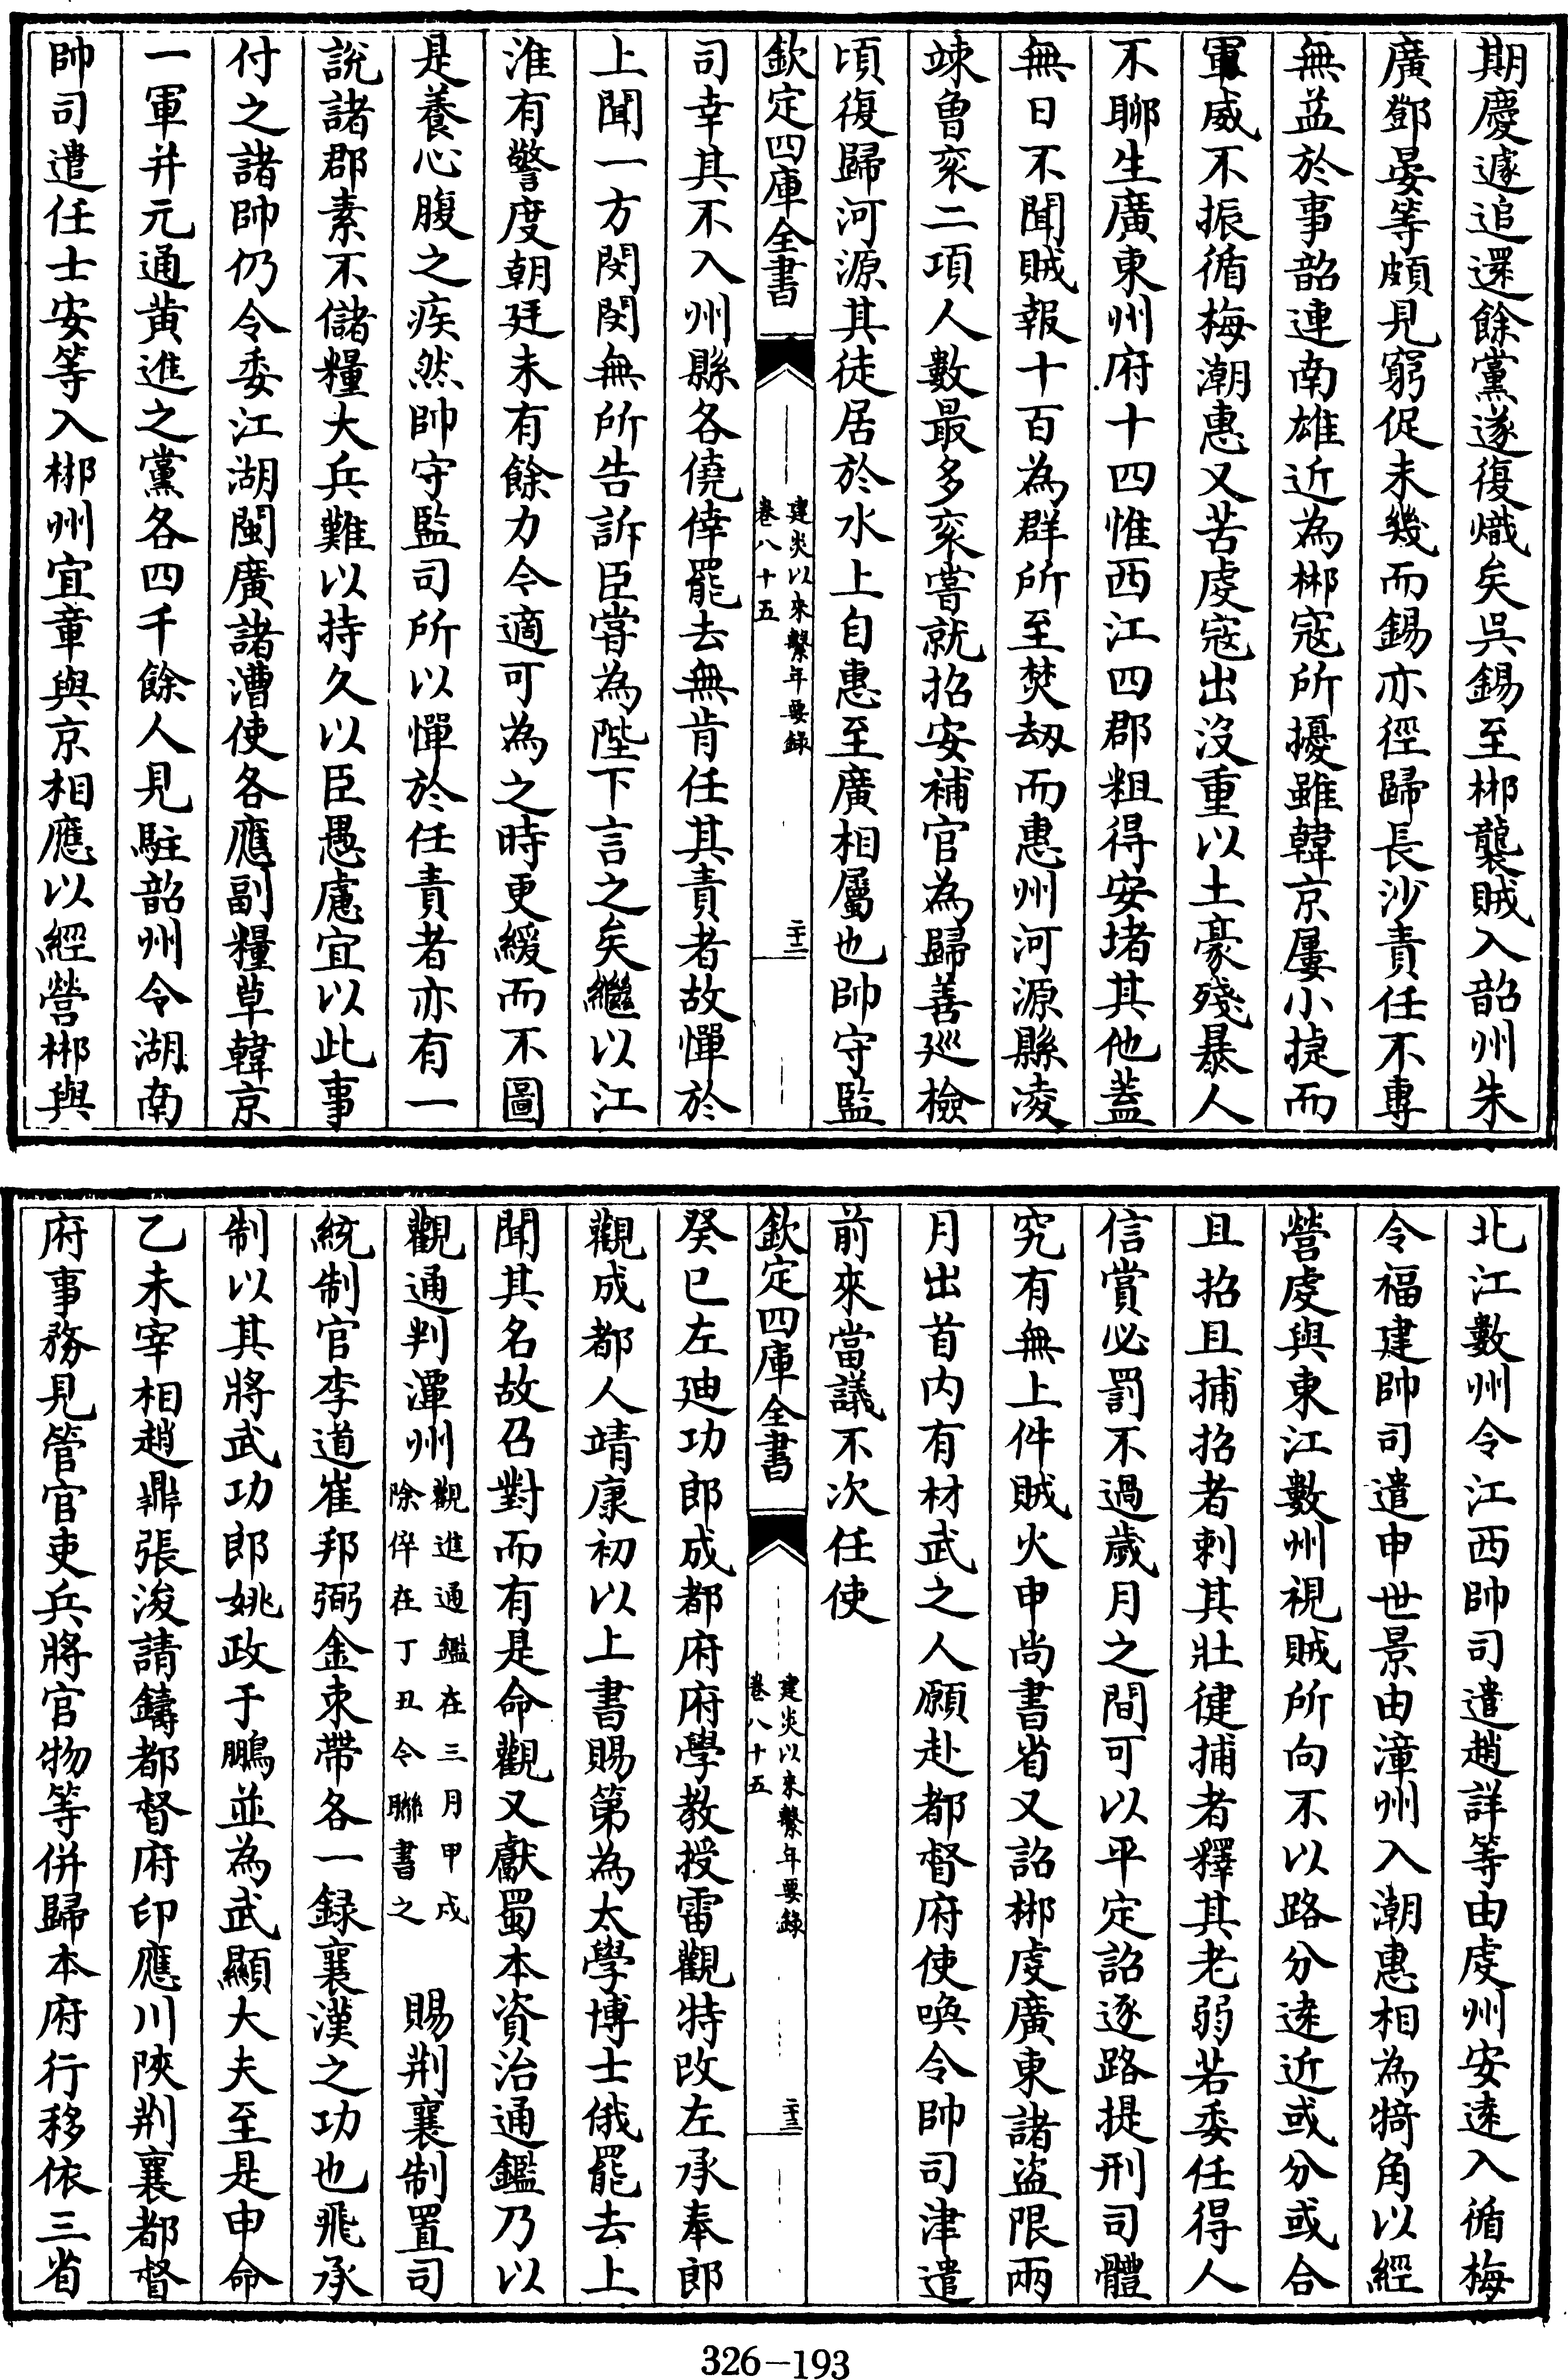 期慶遽追還餘黨遂復熾矣吳錫至郴襲賊入韶州朱
廣鄧晏等頗見窮促未幾而錫亦徑歸長沙責任不專
無益於事韶連南雄近為郴寇所擾雖韓京屢小捷而
軍威不振循梅潮惠又苦虔寇出沒重以土豪殘暴人
不聊生廣東州府十四惟西江四郡粗得安堵其他蓋
無日不聞賊報十百為群所至焚劫而惠州河源縣凌
竦曾衮二項人數最多衮嘗就招安補官為歸善廵檢
頃復歸河源其徒居於水上自惠至廣相屬也帥守監
欽定四庫全書
建炎以來繫年要録
卷八十五
二十二
司幸其不入州縣各僥倖罷去無肯任其責者故憚於
上聞一方閔閔無所告訴臣嘗為陛下言之矣繼以江
淮有警度朝廷未有餘力今適可為之時更緩而不圖
是養心腹之疾然帥守監司所以憚於任責者亦有一
說諸郡素不儲糧大兵難以持久以臣愚慮宜以此事
付之諸帥仍令委江湖閩廣諸漕使各應副糧草韓京
一軍并元通黄進之黨各四千餘人見駐韶州令湖南
帥司遣任士安等入郴州宜章與京相應以經營郴與
北江數州令江西帥司遣趙詳等由虔州安遠入循梅
令福建帥司遣申世景由漳州入潮惠相為犄角以經
營虔與東江數州視賊所向不以路分逺近或分或合
且招且捕招者刺其壯健捕者釋其老弱若委任得人
信賞必罰不過歲月之間可以平定詔逐路提刑司體
究有無上件賊火申尚書省又詔郴虔廣東諸盜限兩
月出首内有材武之人願赴都督府使喚令帥司津遣
前來當議不次任使
欽定四庫全書
建炎以來繫年要録
卷八十五
二十三
癸巳左廸功郎成都府府學教授雷觀特改左承奉郎
觀成都人靖康初以上書賜第為太學博士俄罷去上
聞其名故召對而有是命觀又獻蜀本資治通鑑乃以
觀通判潭州觀進通鑑在三月甲戌除倅在丁丑今聯書之　賜荆襄制置司
統制官李道崔邦弼金束帶各一録襄漢之功也飛承
制以其將武功郎姚政于鵬並為武顯大夫至是申命
乙未宰相趙鼎張浚請鑄都督府印應川陜荆襄都督
府事務見管官吏兵將官物等併歸本府行移依三省
326-193